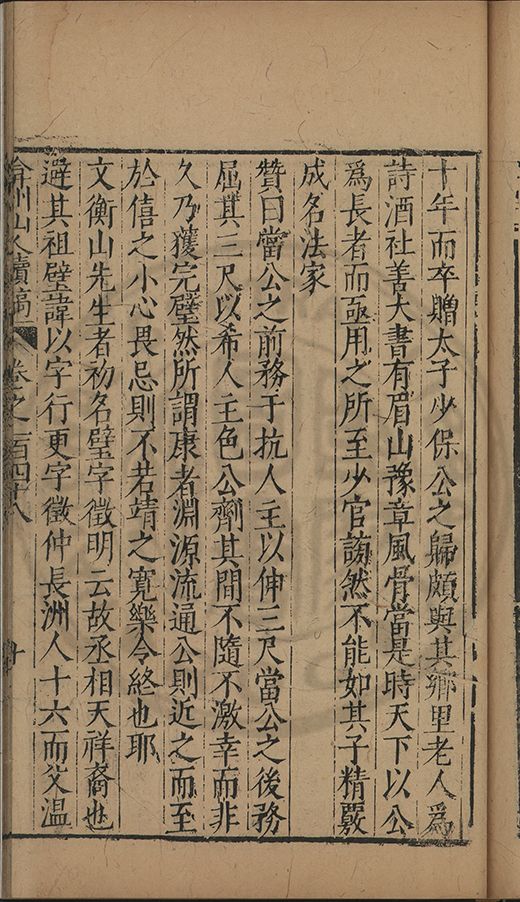 十年而卒贈太子少保公之歸頗與其鄉里老人爲
詩酒社善大書有眉山豫章風骨當是時天下以公
爲長者而亟用之所至少官謗然不能如其子精覈
成名法家
贊曰當公之前務于抗人主以伸三尺當公之後務
屈其三尺以希人主色公劑其間不隨不激幸而非
久乃獲完璧然所謂康者淵源流通公則近之而至
於僖之小心畏忌則不若靖之寬樂令終也耶
文衡山先生者初名璧字徵明云故丞相天祥裔也
避其祖璧諱以字行更字徵仲長洲人十六而父溫
弇州山人續稿 卷之一百四十八 十